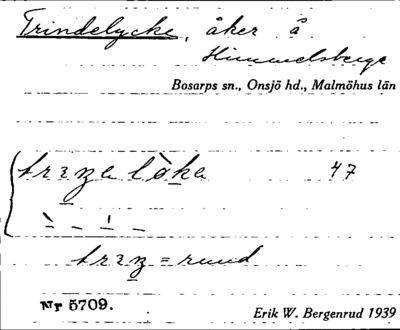 Trindelycke, åker å
Himmelsberga
Bosarps sn., Onsjö hd., Malmöhus län
trɪnelòka 47
trɪn = rund
Nr 5709.
Erik W. Bergenrud 1939